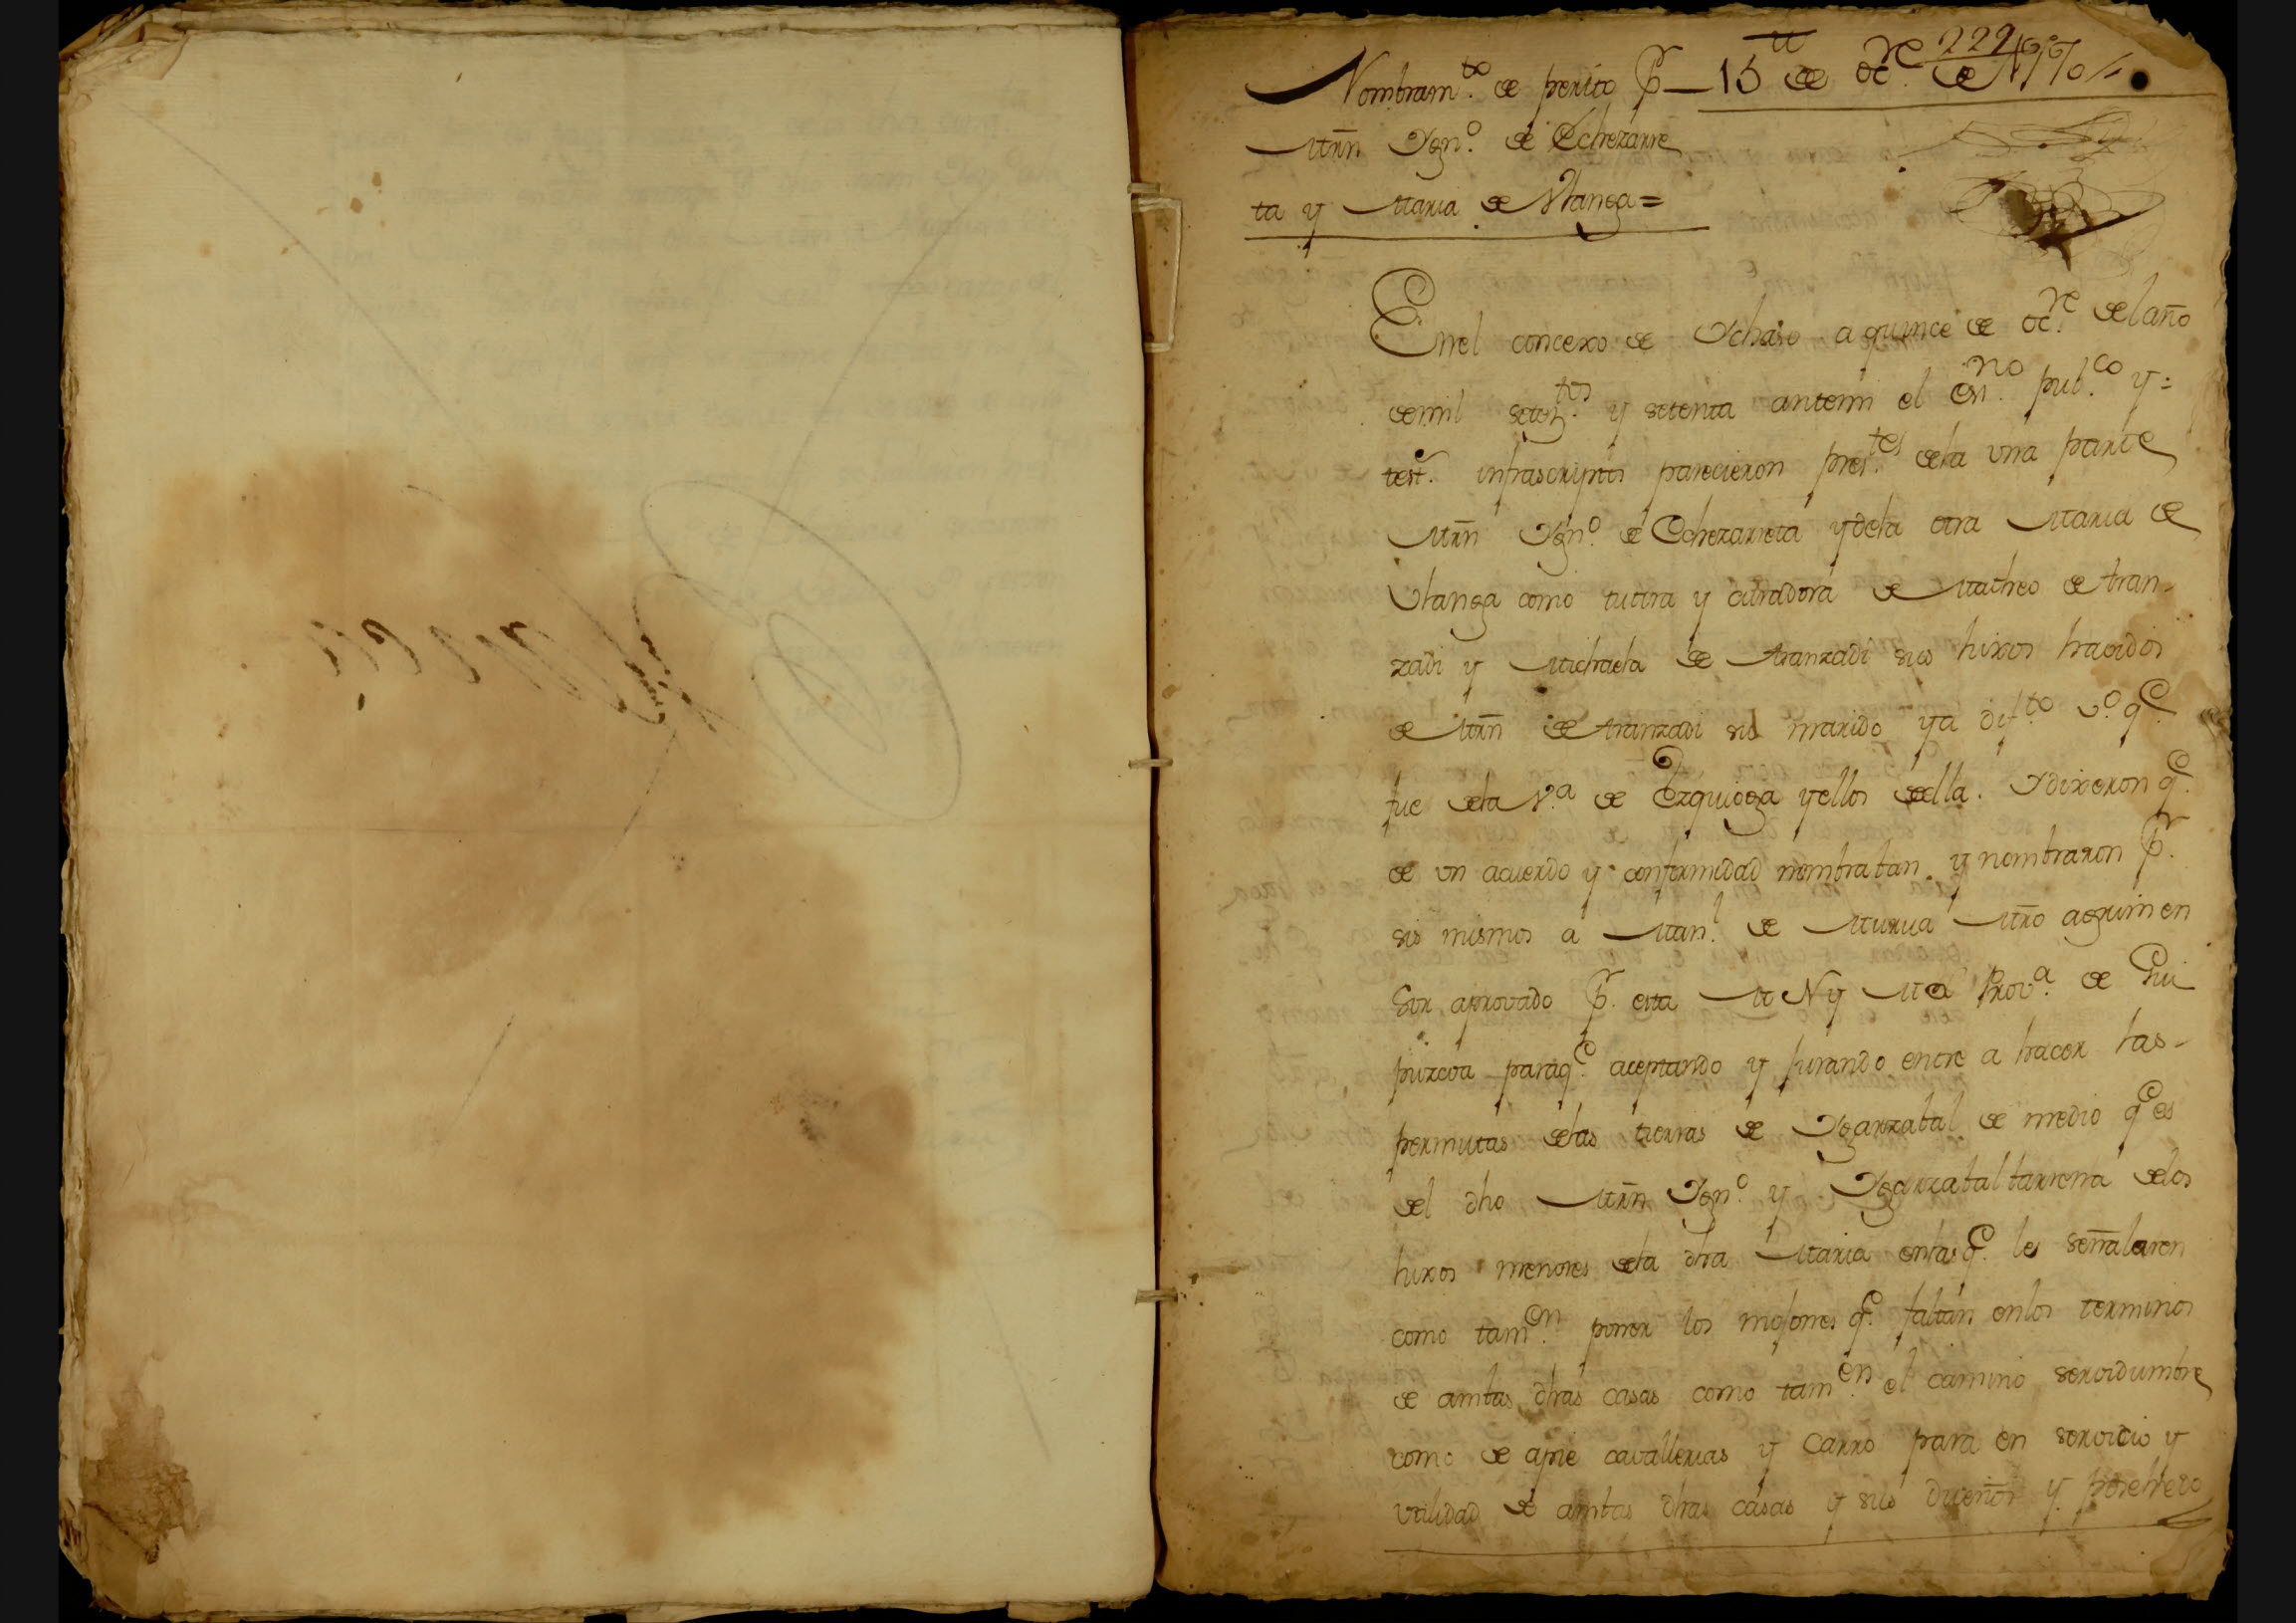 222
Nombram.to de perito Pr 15 de oc.re de 1770
Mrn Ygn.o de Echezarre
ta y Maria de Vlanga=
Enel concexo de Ychaso a quince de oc.re delaño
demil setez.tos y setenta antemi el es.no pub.co y
test. infrascriptos parecieron pres.tes dela vna parte
Mrn Ygn.o de Echezarreta ydela otra Maria de
Vlanga como tutora y curadora de Matheo de Aran
zadi y Michaela de Aranzadi sus hixos havidos
de Mrn de Aranzadi su marido ya dif.to v.o q.e
fue dela V.a de Ezquioga yellos della. Ydixeron q.e
de vn acuerdo y conformidad nombraban y nombraron Pr.
sis mismos á Man.l de Murua Mro agrimen
sor aprovado Pr. esta M N y M L Prov.a de Gui
puzcoa paraq.e aceptando y jurando entre a hacer las
permutas delas tierras de Ygarzabal de medio q.e es
del dho Mrn Ygn.o y Ygarzabal barrena delos
hixos menores dela dha Maria enlas q.e le señalaren
como tam.en poner los mojones q.e faltan enlos terminos
de ambas dhas casas como tam.en el camino servidumbre
como de apie cavallerias y carro para en servicio y
vtilidad de ambas dhas casas y sus dueños y